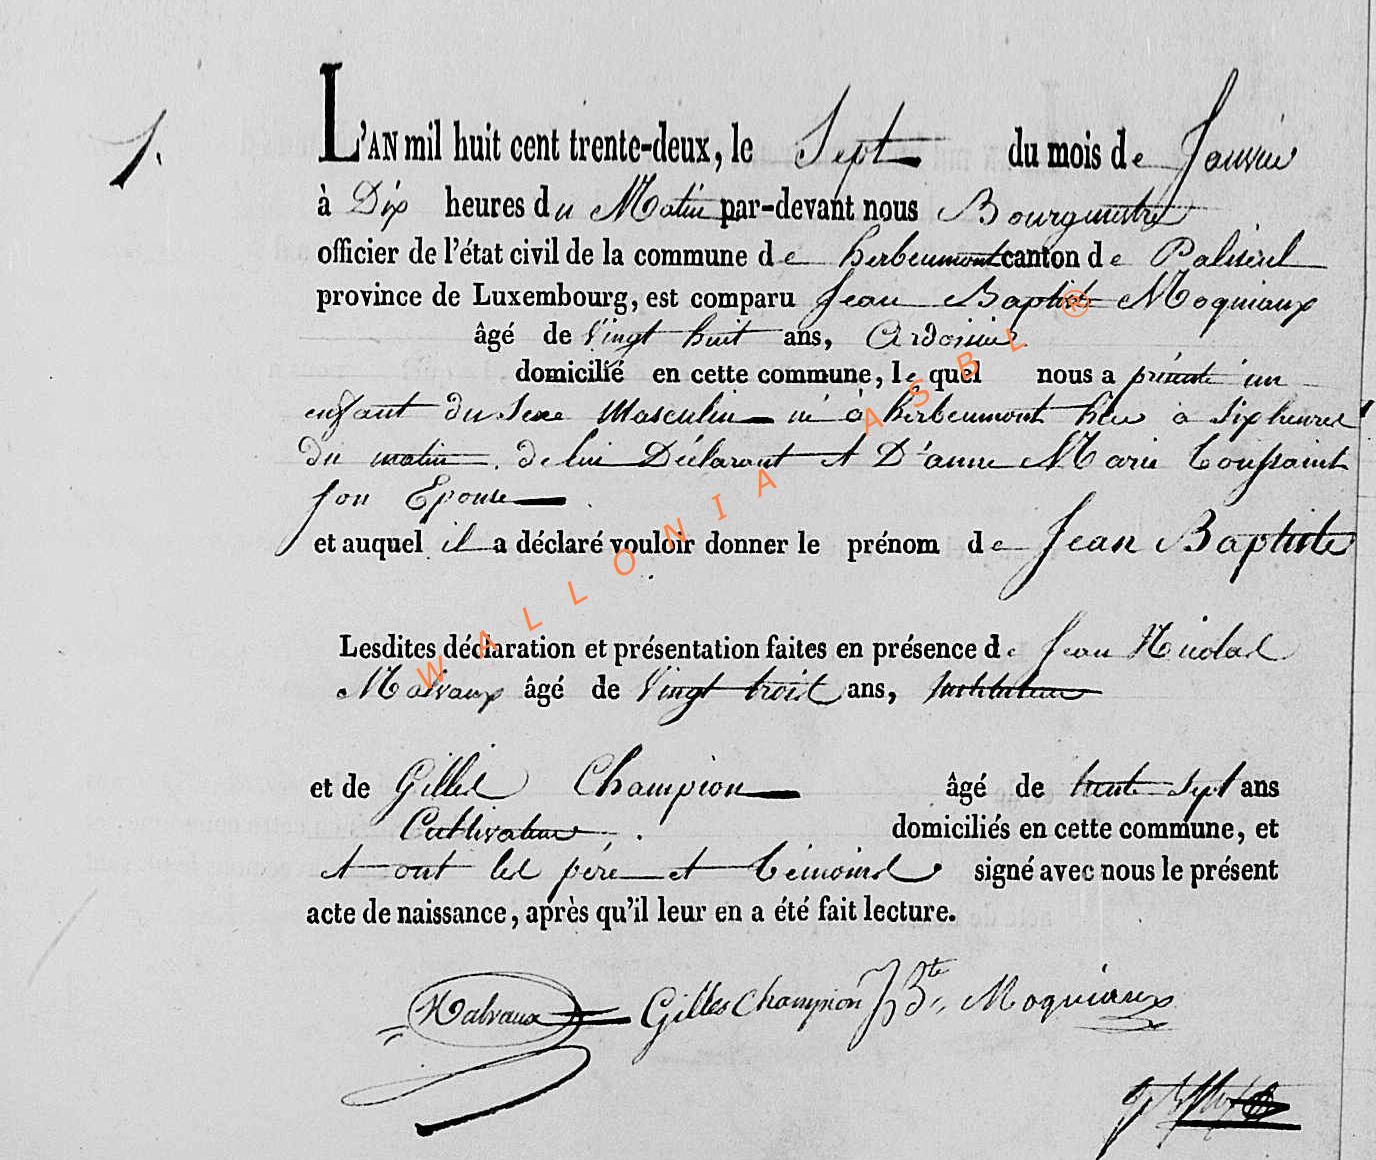 1.
L'AN mil huit cent trente-deux, le Sept du mois de Janvier
à Dix heures du Matin par-devant nous Bourgmestre
officier de l'état civil de la commune de herbeumont canton de Paliseul
province de Luxembourg, est comparu Jean Baptiste Moquiaux
âgé de Vingt huit ans, Ardoisier
domicilié en cette commune, lequel nous a présenté un
enfant du Sexe Masculin né à herbeumont hier à Six heures
du matin. de lui Déclarant et D'anne Marie Toussaint
Son Epouse
et auquel il a déclaré vouloir donner le prénom de Jean Baptiste
Lesdites déclaration et présentation faites en présence de Jean Nicolas
Malvaux âgé de Vingt trois ans, Instituteur
et de Gilles Champion âgé de trente Sept ans
Cultivateur. domiciliés en cette commune, et
et ont les père et témoins signé avec nous le présent
acte de naissance, après qu'il leur en a été fait lecture.
Malvaux Gilles Champion J Bte Moquiaux
WALLONIA ASBL ®